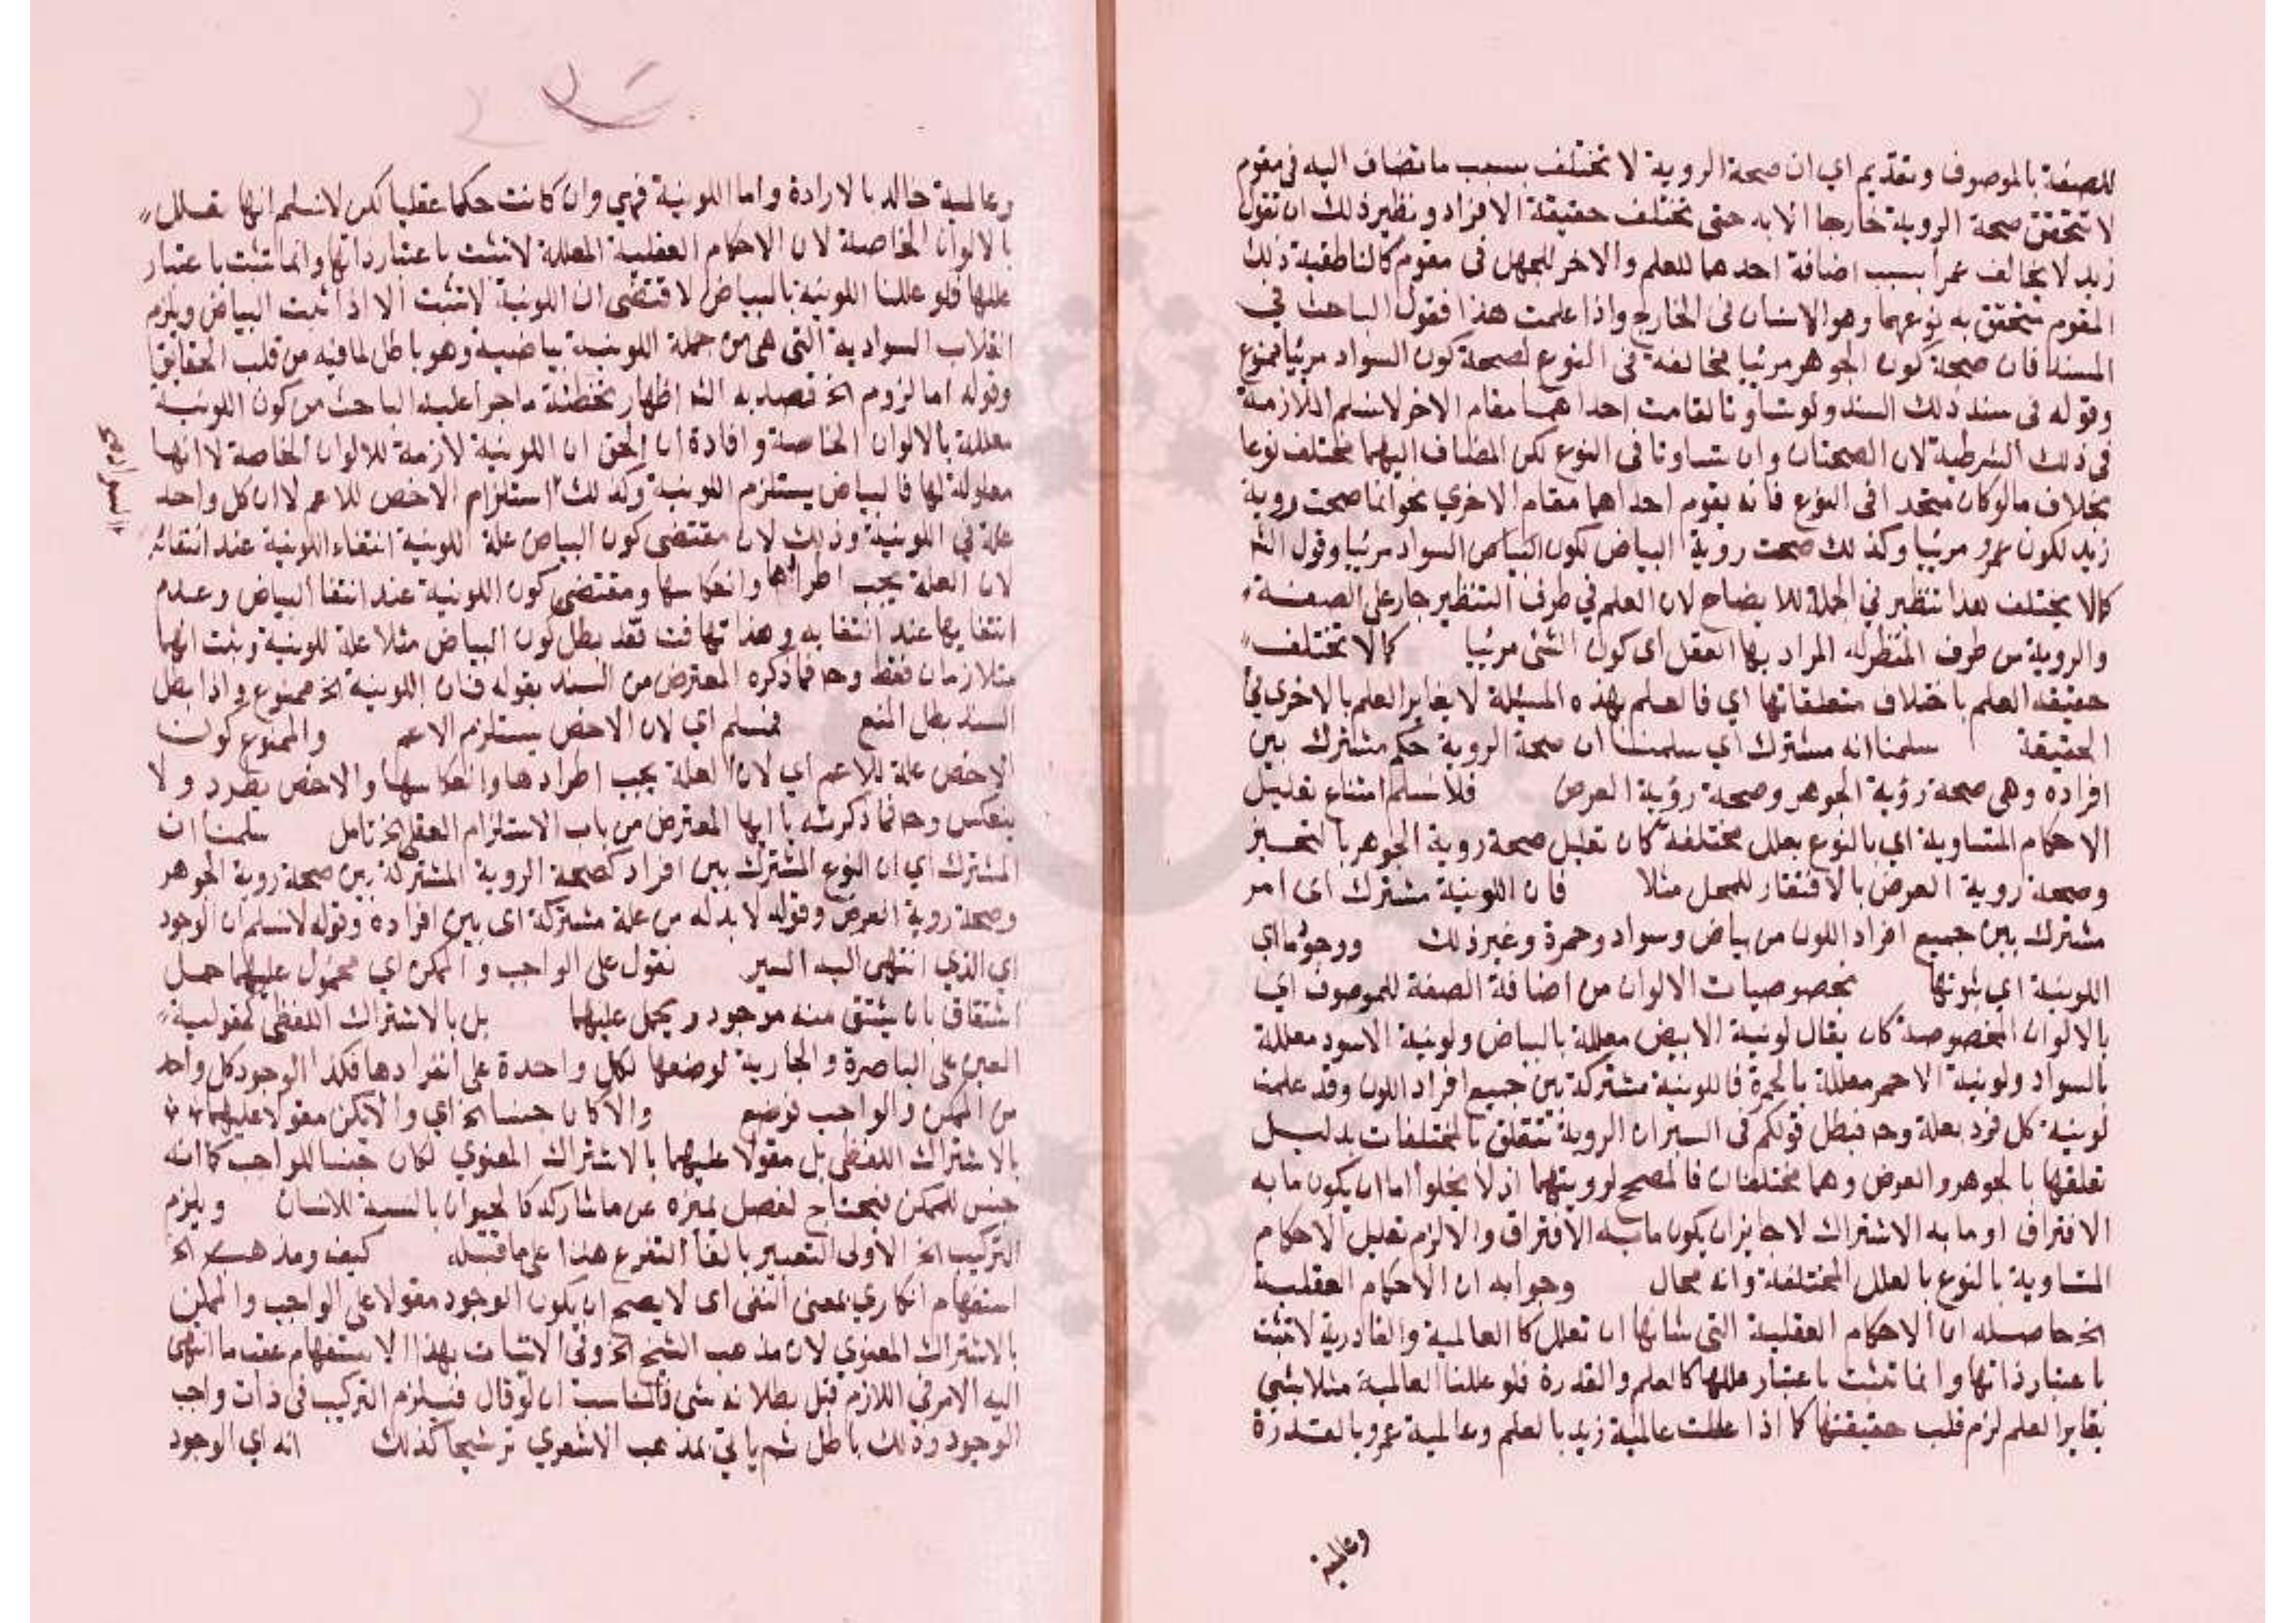 للصفة بالموصوف وتقديم اي ان صحة الروية لا تختلف بسبب ما تضاف اليه في مقوم
لا تتحقق صحة الروية خارجا الا به حتى تختلف حقيقة الافراد ونظير ذلك ان تقول
زيد لا يخالف عمرا بسبب اضافة احدهما للعلم والاخر للجهل في مقوم كالناطقية ذلك
المقوم يتحقق به نوعهما وهو الانسان في الخارج واذا علمت هذا فقول الباحث في
السند فان صحة كون الجوهر مرئيا مخالفة في النوع لصحة كون السواد مرئيا ممنوع
وقوله في سند ذلك السند ولو تساوتا لقامت احداهما مقام الاخر لا نسلم الملازمة
في ذلك الشرطية لان الصحتان وان تساوتا في النوع لكن المضاف اليهما مختلف نوعا
بخلاف ما لو كان متحدا في النوع فانه يقوم احداهما مقام الاخري نحو انما صحت روية
زيد لكون عمرو مرئيا وكذلك صحت روية البياض لكون البياض السواد مرئيا وقول الش
كما لا يختلف هذا تنظير في الجملة للايضاح لان العلم في طرف التنظير جار على الصفة
والروية من طرف المنظر له المراد بها العقل اى كون الشئ مرئيا كما لا تختلف
حقيقة العلم باختلاف متعلقاتها اي فالعلم بهذه المسئلة لا يغاير العلم بالاخرى في
الحقيقة سلمنا انه مشترك اي سلمنا ان صحة الروية حكم مشترك بين
افراده وهي صحة رؤية الجوهر وصحة رؤية العرض فلا نسلم امتناع تعليل
الاحكام المتساوية اي بالنوع بعلل مختلفة كان تعليل صحة روية الجوهر بالتحيز
وصحة روية العرض بالافتقار للمحل مثلا فان اللونية مشترك اى امر
مشترك بين جميع افراد اللون من بياض وسواد وحمرة وغير ذلك ووجودها اي
اللونية اي ثبوتها بخصوصيات الالوان من اضافة الصفة للموصوف اي
بالالوان المخصوصة كان يقال لونية الابيض معللة بالبياض ولونية الاسود معللة
بالسواد ولونية الاحمر معللة بالحمرة فاللونية مشتركة بين جميع افراد اللون وقد علمت
لونية كل فرد بعلة وحـ فبطل قولكم في السير ان الروية تتعلق بالمختلفات بدليل
تعلقها بالجوهر والعرض وهما مختلفان فالمصحح لرويتهما اذ لا يخلوا اما ان يكون ما به
الافتراق او ما به الاشتراك لا جايز ان يكون ما به الافتراق والا لزم تعليل الاحكام
المتساوية بالنوع بالعلل المختلفة وانه محال وجوابه ان الاحكام العقلية
الخ حاصله ان الاحكام العقلية التي شانها ان تعلل كالعالمية والقادرية لا تثبت
باعتبار ذاتها وانما تثبت باعتبار عللها كالعلم والقدرة فلو عللنا العالمية مثلا بشئ
يغاير العلم لزم قلب حقيقتها كما اذا عللت عالمية زيد بالعلم وعالمية عمرو بالقدرة
وعالمية
وعالمية خالد بالارادة واما اللونية فهي وان كانت حكما عقليا لكن لا نسلم انها تعلل
بالالوان الخاصة لان الاحكام العقلية المعللة لا تثبت باعتبار ذاتها وانما تثبت باعتبار
عللها فلو عللنا اللونية بالبياض لاقتضى ان اللونية لا تثبت الا اذا ثبت البياض ويلزم
انقلاب السوادية التي هي من جملة اللونية بياضية وهو باطل لما فيه من قلب الحقايق
وقوله اما لزوم الخ قصد به الش اظهار تخطئة ما جرا عليه الباحث من كون اللونية
معللة بالالوان الخاصة وافادة ان الحق ان اللونية لازمة للالوان الخاصة لا انها
معلولة لها فالبياض يستلزم اللونية وكذلك استلزام الاخص للاعم لا ان كل واحد
علة في اللونية وذلك لان مقتضى كون البياض علة اللونية انتفاء اللونية عند انتفائه
لان العلة يجب اطرادها وانعكاسها ومقتضى كون اللونية عند انتفا البياض وعدم
انتفايها عند انتفايه وهذا تهافت فقد بطل كون البياض مثلا علة للونية وثبت انهما
متلازمان فقط وحـ فما ذكره المعترض من السند بقوله فان اللونية الخ ممنوع واذا بطل
السند بطل المنع فمسلم اي لان الاخص يستلزم الاعم والممنوع كون
الاخص علة للاعم اي لان العلة يجب اطرادها وانعكاسها والاخص يطرد ولا
ينعكس وحـ فما ذكرته يا ايها المعترض من باب الاستلزام العقلي الخ تامل سلمنا ان
المشترك اي ان النوع المشترك بين افراد كصحة الروية المشتركة بين صحة روية الجوهر
وصحة روية العرض وقوله لا بد له من علة مشتركة اى بين افراده وقوله لا نسلم ان الوجود
اي الذي انتهى اليه السير نقول على الواجب والممكن اي محمول عليهما حمل
اشتقاق بان يشتق منه موجود ويحمل عليهما بل بالاشتراك اللفظي كمقولية
العين على الباصرة والجارية لوضعها لكل واحدة على انفرادها فكذا الوجود كل واحد
من الممكن والواجب توضع والا كان جنسا الخ اي والا يكن مقولا عليهما
بالاشتراك اللفظي بل مقولا عليهما بالاشتراك المعنوي لكان جنسا للواجب كما انه
جنس للممكن فيحتاج لفصل يميزه عن ما شاركه كالحيوان بالنسبة للانسان ويلزم
التركيب الخ الاولى التعبير بالفا التفرع هذا على ما قبله كيف ومذهب الخ
استفهام انكاري بمعنى النفى اى لا يصح ان يكون الوجود مقولا على الواجب والممكن
بالاشتراك المعنوي لان مذهب الشيخ الخ وفي الاتيان بهذا الاستفهام عقب ما انتهى
اليه الامر في اللازم قبل بطلانه شئ فالمناسب ان لو قال فيلزم التركيب في ذات واجب
الوجود وذلك باطل ثم ياتي بمذهب الاشعري ترشيحا كذلك انه اي الوجود